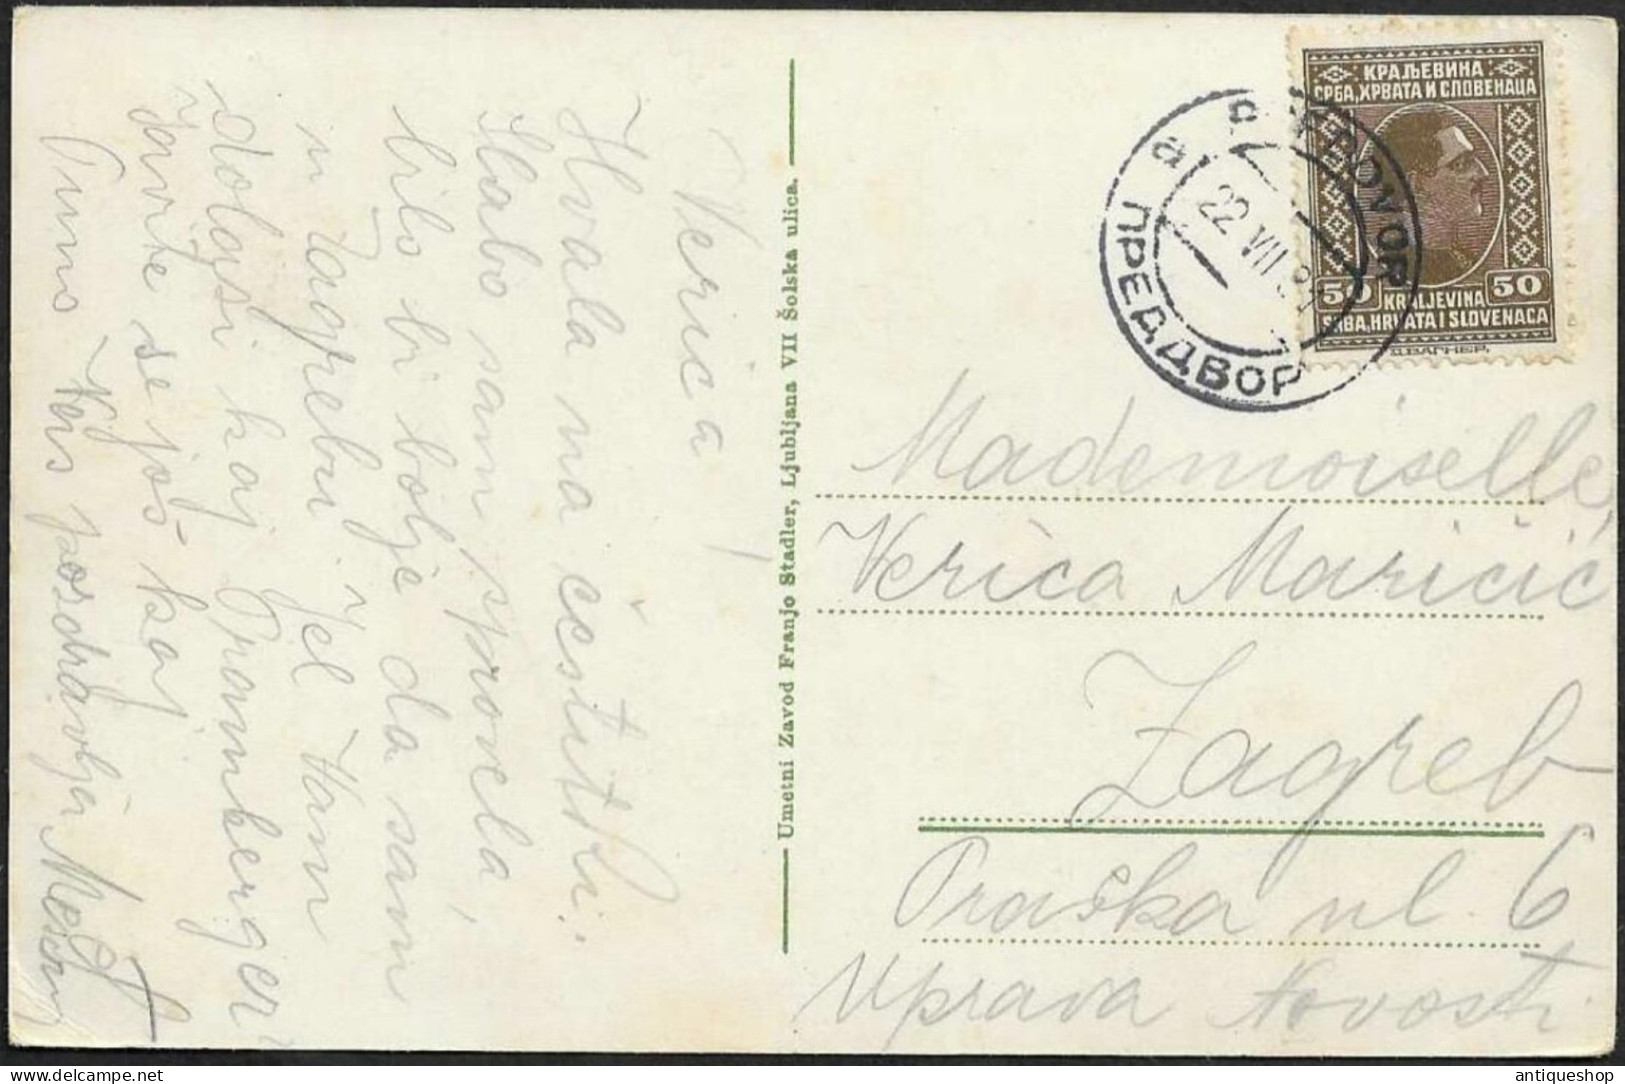 Verica!
Hvala na čestitki.
Slabo sam sprovela,
bilo bi bolje da sam
u Zagrebu. Jel Ham
dolazi kaj Gramberger
Javite se još koj
Puno Vas pozdravlja
Umetni Zavod Franjo Stadler, Ljubljana VII Šolska ulica.
КРАЉЕВИНА
СРБА, ХРВАТА И СЛОВЕНАЦА
50 KRALJEVINA 50
SRBA, HRVATA I SLOVENACA
Д. ВАГНЕР.
a PREDDVOR
23 VII
ПРЕДДВОР
Mademoiselle
Verica Maričić
Zagreb
Praška ul. 6
Uprava Novosti
antiqueshop